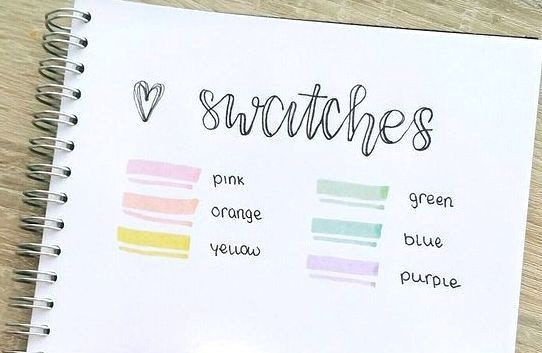 swatches
pink
orange
yellow
green
blue
purple